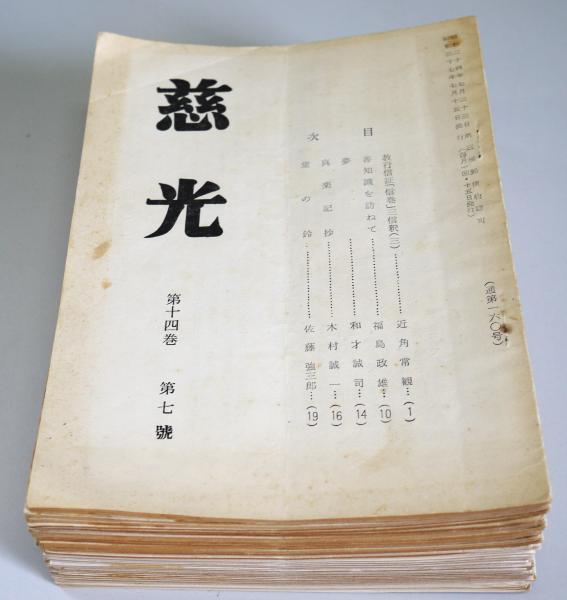 昭和二十四年七月二十三日第三種郵便物認可
昭和三十七年七月十五日発行(毎月一回・十五日発行)
(通第一六〇号)
目次
教行信証「信巻」三信釈(三)…近角常観…(1)
善知識を訪ねて…福島政雄…(10)
夢…和才誠司…(14)
真楽記抄…木村誠一…(16)
堂の鈴…佐藤強三郎…(19)
慈光
第十四巻 第七號